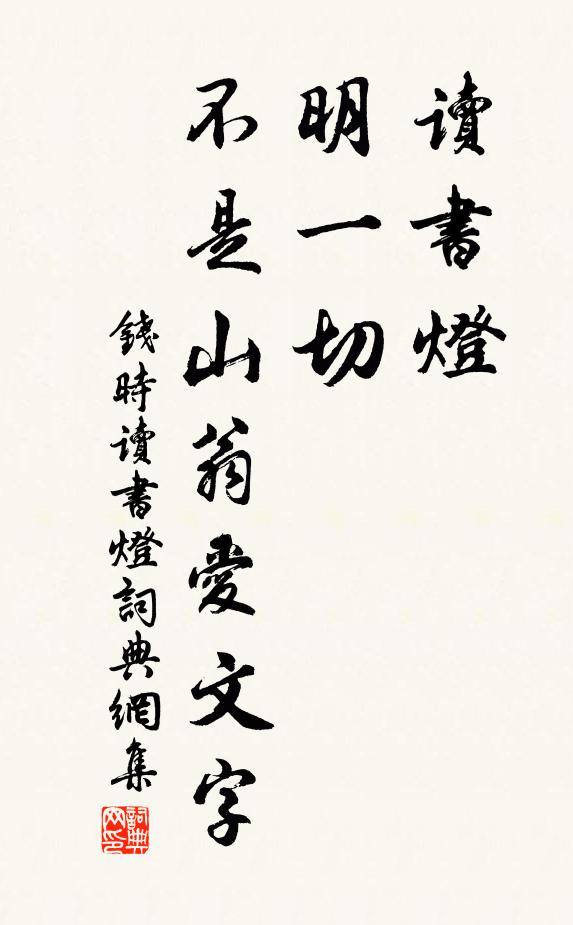 讀書燈
明一切
不是山翁愛文字
錢時讀書燈詞典網集
詞典网印